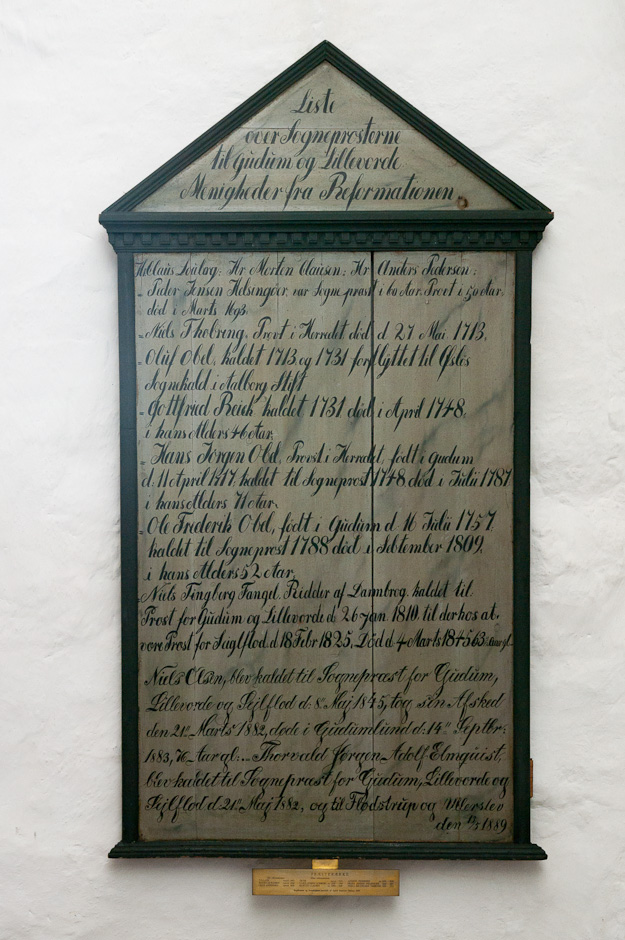 Liste
over Sogneprosterne
til Gudum og Lillevorde
Menigheder fra Reformationen
Hr Morten Clausen; Hr Anders Pedersen;
Peder Jensen Helsingöer, var Sogne præst i 60 Aar, Provt i 50 Aar,
död i Marts 1693.
Niels Thobring, Provt i Herredet död d 27 Mai 1713,
Oluf Obel, kaldet 1713 og 1731 forflyttet til Öslös
Sognekald i Aalborg Stift
Gottfried Reich kaldet 1731 död i April 1748,
i hans Alders 46 Aar,
Hans Jörgen Obd, Provst i Herredet, födt i Gudum
d. 11 April 1717, kaldet til Sogneprost 1748 död i Julii 1787
i hans Alders 71 Aar,
Ole Frederik Obel, födt i Gudum d 16 Julii 1757.
kaldet til Sogneprost 1788 död i Sebtember 1809,
i hans Alders 52 Aar,
Niels Tingberg Fangel, Ridder af Dannbrog kaldet til
Prost for Gudum og Lillevorde d 26 Jan 1810, til derhos at,
vore Prost for Saglflod d 18 Febr 1825, Död d 4 Marts 1845 63
Niels Olsen, blev kaldet til Sognepræst for Gudum,
Lillevorde og Sejlflod d: 8de Maj 1845, tog sin Afsked
den 21de Marts 1882, døde i Gudumlund d: 14de Septbr:
1883, 76 Aar gl: Thorvald Jørgen Adolf Elmquist,
blev kaldet til Sognepræst for Gudum, Lillevorde og
Sejlflod d 21de Maj 1882, og til Flodstrup og Ullerslev
den 13/5 1889